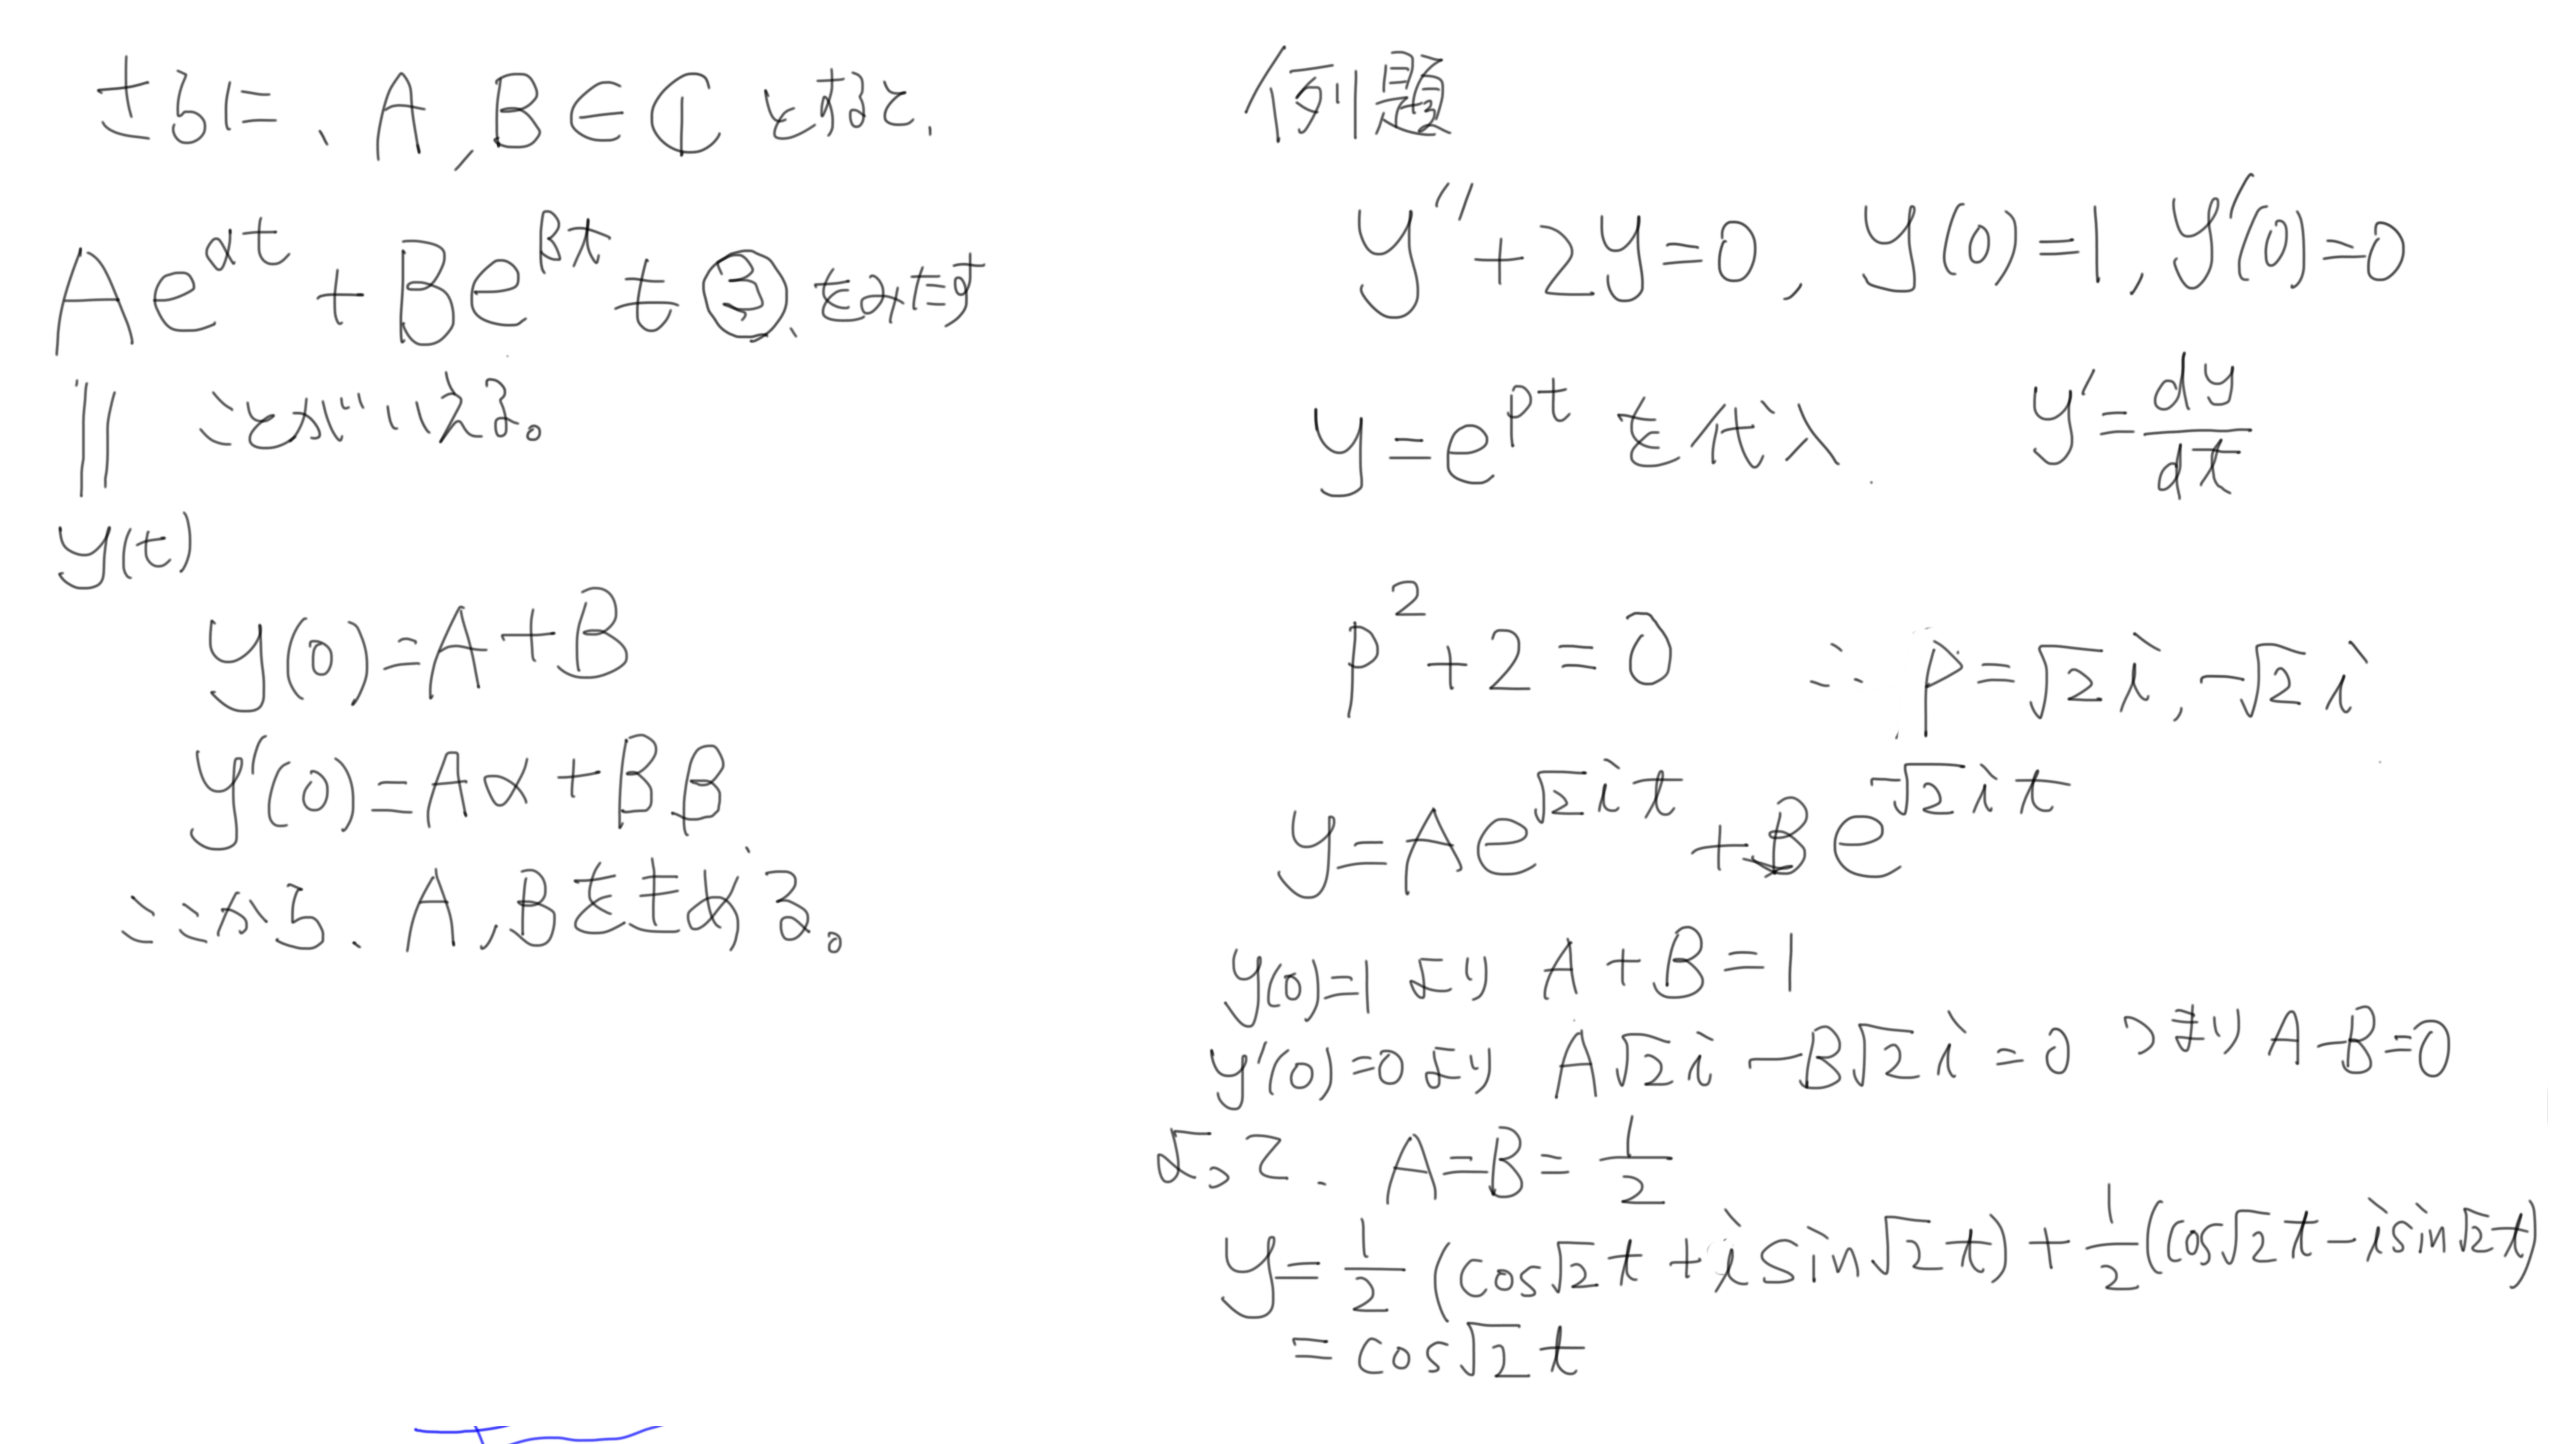 さらに、A, B ∈ ℂ とすると、
Ae^{αt} + Be^{βt} も ③ をみたす
ことがいえる。
||
y(t)
y(0) = A + B
y'(0) = Aα + Bβ
ここから、A, Bをまめる。
例題
y'' + 2y = 0, y(0) = 1, y'(0) = 0
y = e^{pt} を代入 y' = \frac{dy}{dt}
p^2 + 2 = 0 ∴ p = √2 i, -√2 i
y = Ae^{√2 i t} + Be^{-√2 i t}
y(0) = 1 より A + B = 1
y'(0) = 0 より A√2 i - B√2 i = 0 つまり A - B = 0
よって、A = B = \frac{1}{2}
y = \frac{1}{2} (cos√2 t + i sin√2 t) + \frac{1}{2} (cos√2 t - i sin√2 t)
= cos√2 t